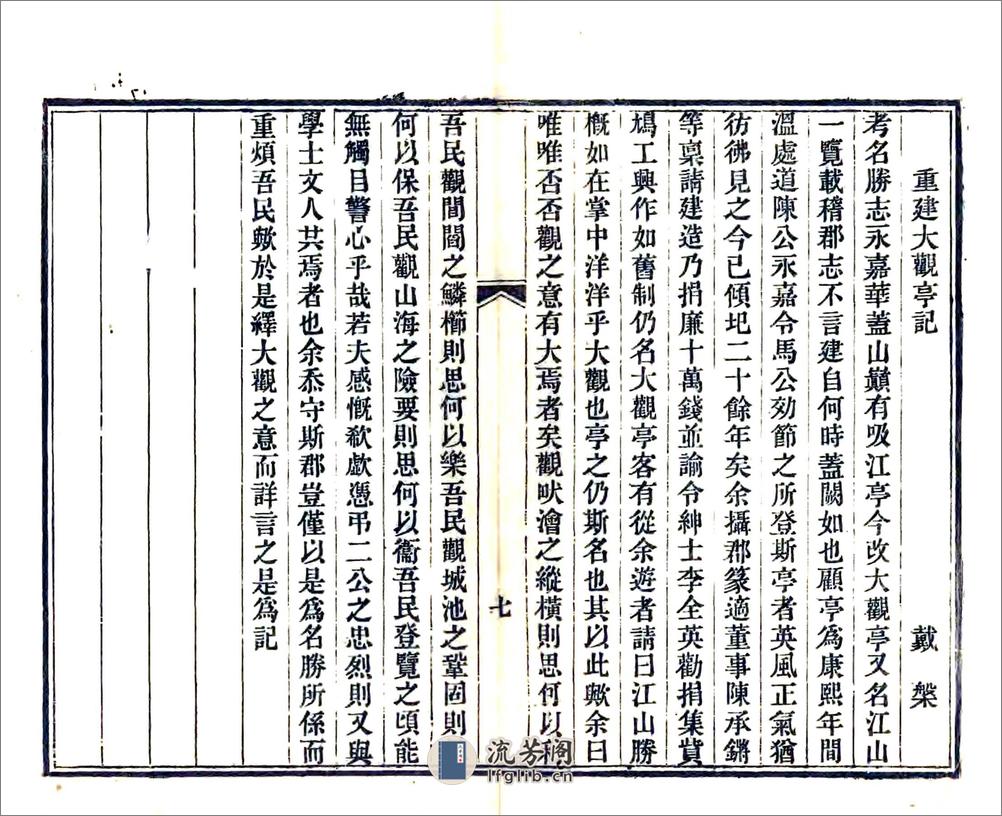 重建大觀亭記 戴槃
考名勝志永嘉華蓋山巔有吸江亭今改大觀亭又名江山
一覽載稽郡志不言建自何時蓋闕如也顧亭爲康熙年間
溫處道陳公永嘉令馬公効節之所登斯亭者英風正氣猶
彷彿見之今已傾圮二十餘年矣余攝郡篆適董事陳承鏘
等稟請建造乃捐廉十萬錢並諭令紳士李全英勸捐集貲
鳩工興作如舊制仍名大觀亭客有從余遊者請曰江山勝
槪如在掌中洋洋乎大觀也亭之仍斯名也其以此歟余曰
唯唯否否觀之意有大焉者矣觀畎澮之縱橫則思何以
七
吾民觀閭閻之鱗櫛則思何以樂吾民觀城池之鞏固則
何以保吾民觀山海之險要則思何以衞吾民登覽之頃能
無觸目警心乎哉若夫感慨欷歔憑弔二公之忠烈則又與
學士文人共焉者也余忝守斯郡豈僅以是爲名勝所係而
重煩吾民歟於是繹大觀之意而詳言之是爲記
流芳閣
lfglib.cn